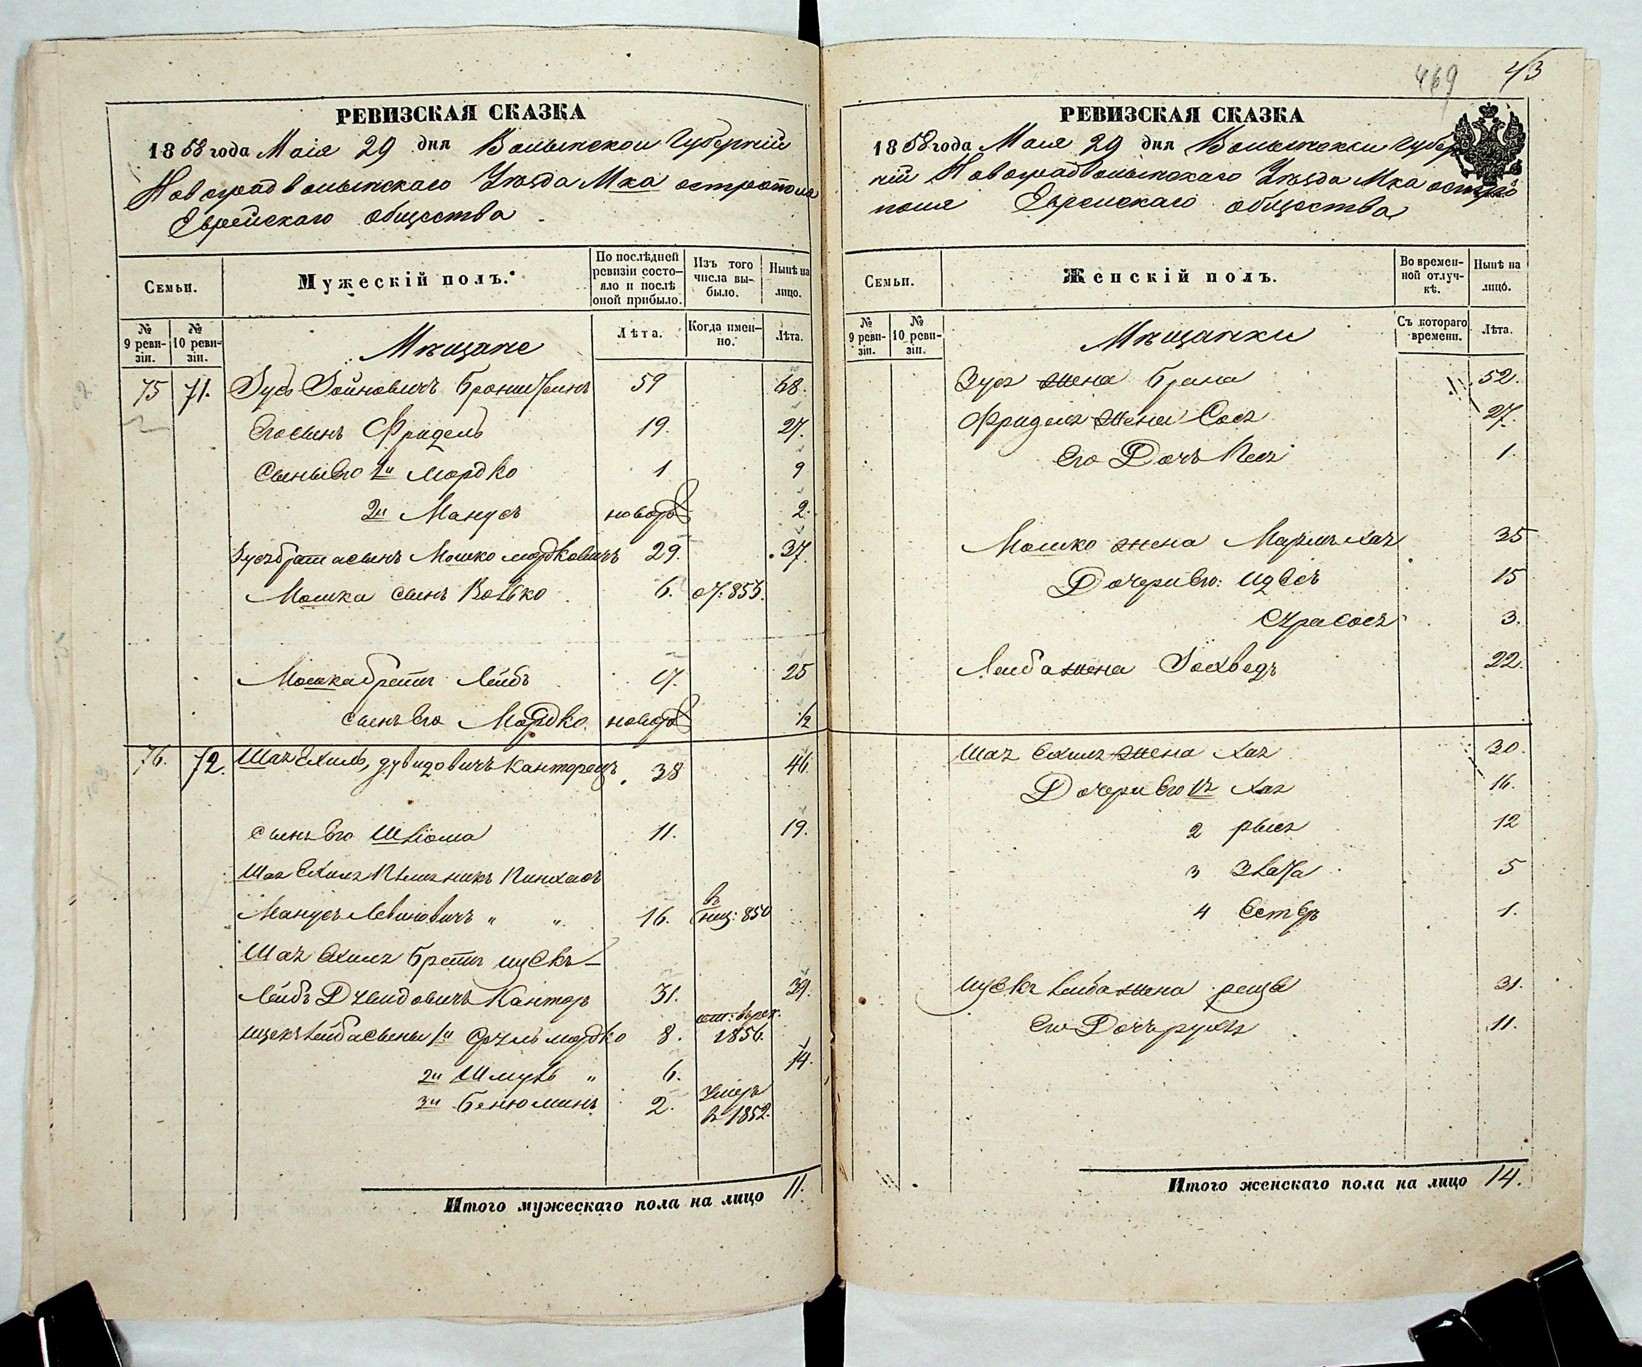 РЕВИЗСКАЯ СКАЗКА
1858 года Маія 29 дня Волынской Губерніи
Новоградволынскаго Уѣзда Мка острополя
Еврейскаго общества
Семьи.
Мужескій полъ.
По послѣдней ревизіи состояло и послѣ оной прибыло.
Изъ того числа выбыло.
Нынѣ на лицо.
№ 9 ревизіи.
№ 10 ревизіи.
Мѣщане
Лѣта.
Когда именно.
Лѣта.
75 71. Зусь 59 68.
Его сынъ Фридель 19. 27.
Сыны его 1й Мордко 1 9
2й Манусъ новорж 2.
Зусъ брата сынъ Мошко Мордковичъ 29. 37.
Мошка сынъ Волько 6. 853.
Мошка братъ Лейбъ 17. 25
сынъ его Мордко новорж 1/2
76. 72. Шая Ехиль Дувидовичъ 38 46.
сынъ его Шліома 11. 19.
Шая Ехиля племникъ Пинхасъ
Манусъ 16. въ 850
Шая Ехиля братъ Ицекъ
Лейбъ Дувидовичъ Кантор 31. 39.
Ицекъ Лейба сыны 1й Сруль Мордко 8. 1856.
2й Шмуль " 6. 14.
3й Бенюминъ 2. умеръ въ 1852.
Итого мужескаго пола на лицо 11.
469 43
РЕВИЗСКАЯ СКАЗКА
1858 года Маія 29 дня Волынской Губер
ніи Новоградволынскаго Уѣзда Мка остро
поля Еврейскаго общества
Семьи.
Женскій полъ.
Во временной отлучкѣ.
Нынѣ на лицо.
№ 9 ревизіи.
№ 10 ревизіи.
Мѣщанки
Съ котораго времени.
Лѣта.
Зуся жена Брана 52.
Фриделя жена Сося 27.
Его Дочь Песя 1.
Мошко жена 35
Дочери его: 15
3.
Лейба жена 22.
Шая Ехиля жена Хая 30.
Дочери его 1я Хая 16.
2 рыся 12
3 Злата 5
4 Естеръ 1.
Ицекъ Лейба жена 31.
Его Дочь рухля 11.
Итого женскаго пола на лицо 14.